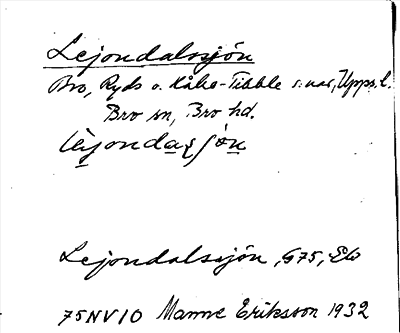 Lejondalssjön
Bro, Ryds o. Håbo-Tibble s:nar, Upps. l.
Bro sn, Bro hd.
Lejondalssjön, G75, Ew
75NV10 Manne Eriksson 1932